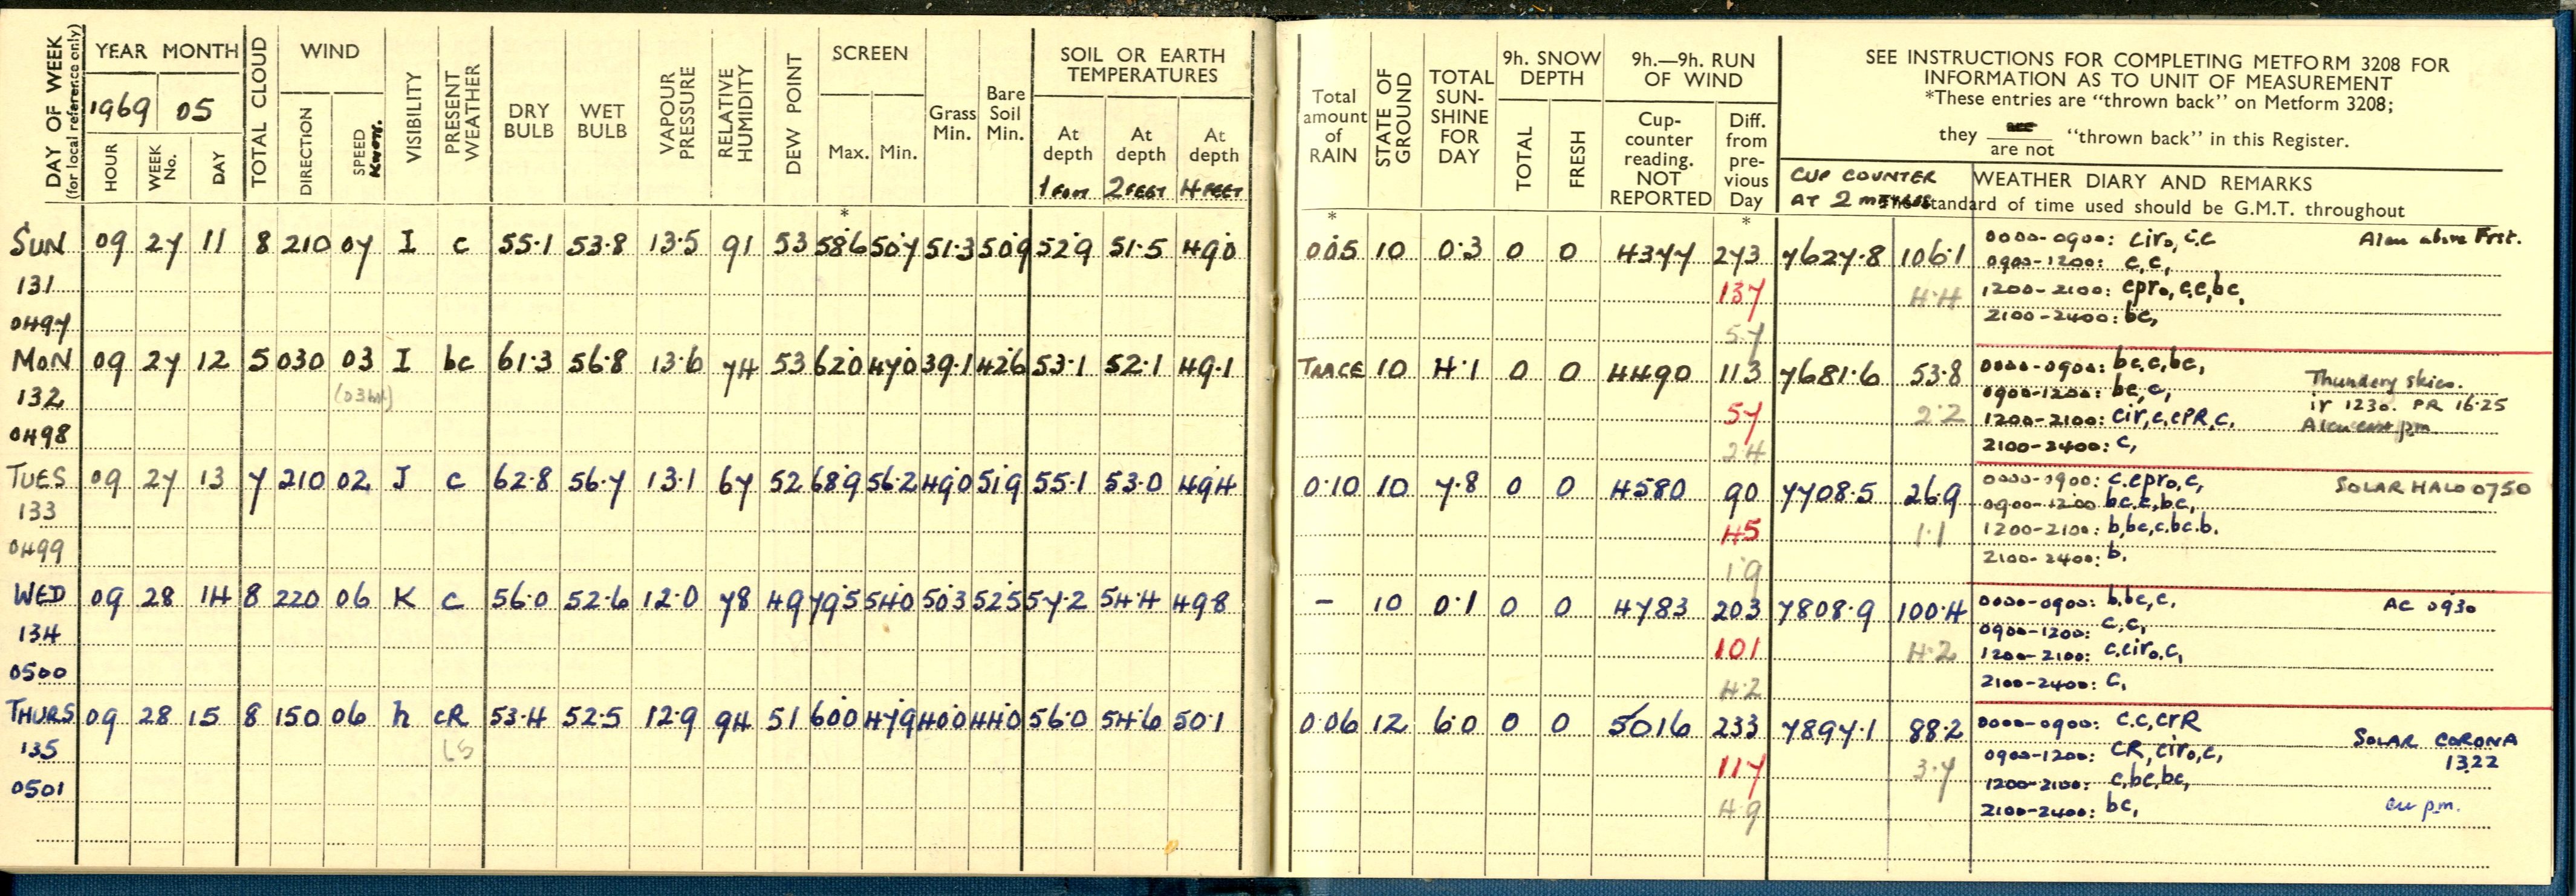 DAY OF WEEK
(for local reference only)
YEAR MONTH
1969 05
HOUR WEEK No. DAY
TOTAL CLOUD
WIND
DIRECTION SPEED KNOTS.
VISIBILITY
PRESENT WEATHER
DRY BULB
WET BULB
VAPOUR PRESSURE
RELATIVE HUMIDITY
DEW POINT
SCREEN
Max. Min.
Grass Min.
Bare Soil Min.
SOIL OR EARTH TEMPERATURES
At depth 1 FOOT At depth 2 FEET At depth 4 FEET
Total amount of RAIN
STATE OF GROUND
TOTAL SUN-SHINE FOR DAY
9h. SNOW DEPTH
TOTAL FRESH
9h.—9h. RUN OF WIND
Cup-counter reading. NOT REPORTED
Diff. from pre-vious Day
SEE INSTRUCTIONS FOR COMPLETING METFORM 3208 FOR
INFORMATION AS TO UNIT OF MEASUREMENT
*These entries are "thrown back" on Metform 3208;
they are / are not "thrown back" in this Register.
CUP COUNTER
AT 2 METRES
WEATHER DIARY AND REMARKS
The standard of time used should be G.M.T. throughout
* * *
SUN 09 27 11 8 210 07 I c 55.1 53.8 13.5 91 53 58.6 50.7 51.3 50.9 52.9 51.5 49.0 0.05 10 0.3 0 0 4377 273 7627.8 106.1 0000-0900: ciro, c.c
0900-1200: c,c,
131 137 4.4 1200-2100: cpro, c.c, bc,
0497 5.7 2100-2400: bc,
MON 09 27 12 5 030 03 I bc 61.3 56.8 13.6 74 53 62.0 47.0 39.1 42.6 53.1 52.1 49.1 TRACE 10 4.1 0 0 4490 113 7681.6 53.8 0000-0900: bc,c,bc, Thundery skies.
132 (03 kt) 0900-1200: bc,c, ir 1230. PR 16.25
57 2.2 1200-2100: cir,c,cPR,c. pm
0498 2.4 2100-2400: c,
TUES 09 27 13 7 210 02 J c 62.8 56.7 13.1 67 52 68.9 56.2 49.0 51.9 55.1 53.0 49.4 0.10 10 7.8 0 0 4580 90 7708.5 26.9 0000-0900: c.cpro,c, SOLAR HALO 0750
133 0900-1200 bc.c,bc,
45 1.1 1200-2100: b,bc,c.bc.b.
0499 1.9 2100-2400: b.
WED 09 28 14 8 220 06 K c 56.0 52.6 12.0 78 49 79.5 54.0 50.3 52.5 57.2 54.4 49.8 - 10 0.1 0 0 4783 203 7808.9 100.4 0000-0900: b,bc,c, AC 0930
134 0900-1200: c,c,
101 4.2 1200-2100: c,ciro,c,
0500 4.2 2100-2400: c,
THURS 09 28 15 8 150 06 h cR 53.4 52.5 12.9 94 51 60.0 47.9 40.0 44.0 56.0 54.6 50.1 0.06 12 6.0 0 0 5016 233 7897.1 88.2 0000-0900: c.c,crR
135 0900-1200: CR, ciro,c, SOLAR CORONA
117 3.7 1322
0501 1200-2100: c,bc,bc,
4.9 2100-2400: bc, cu pm.